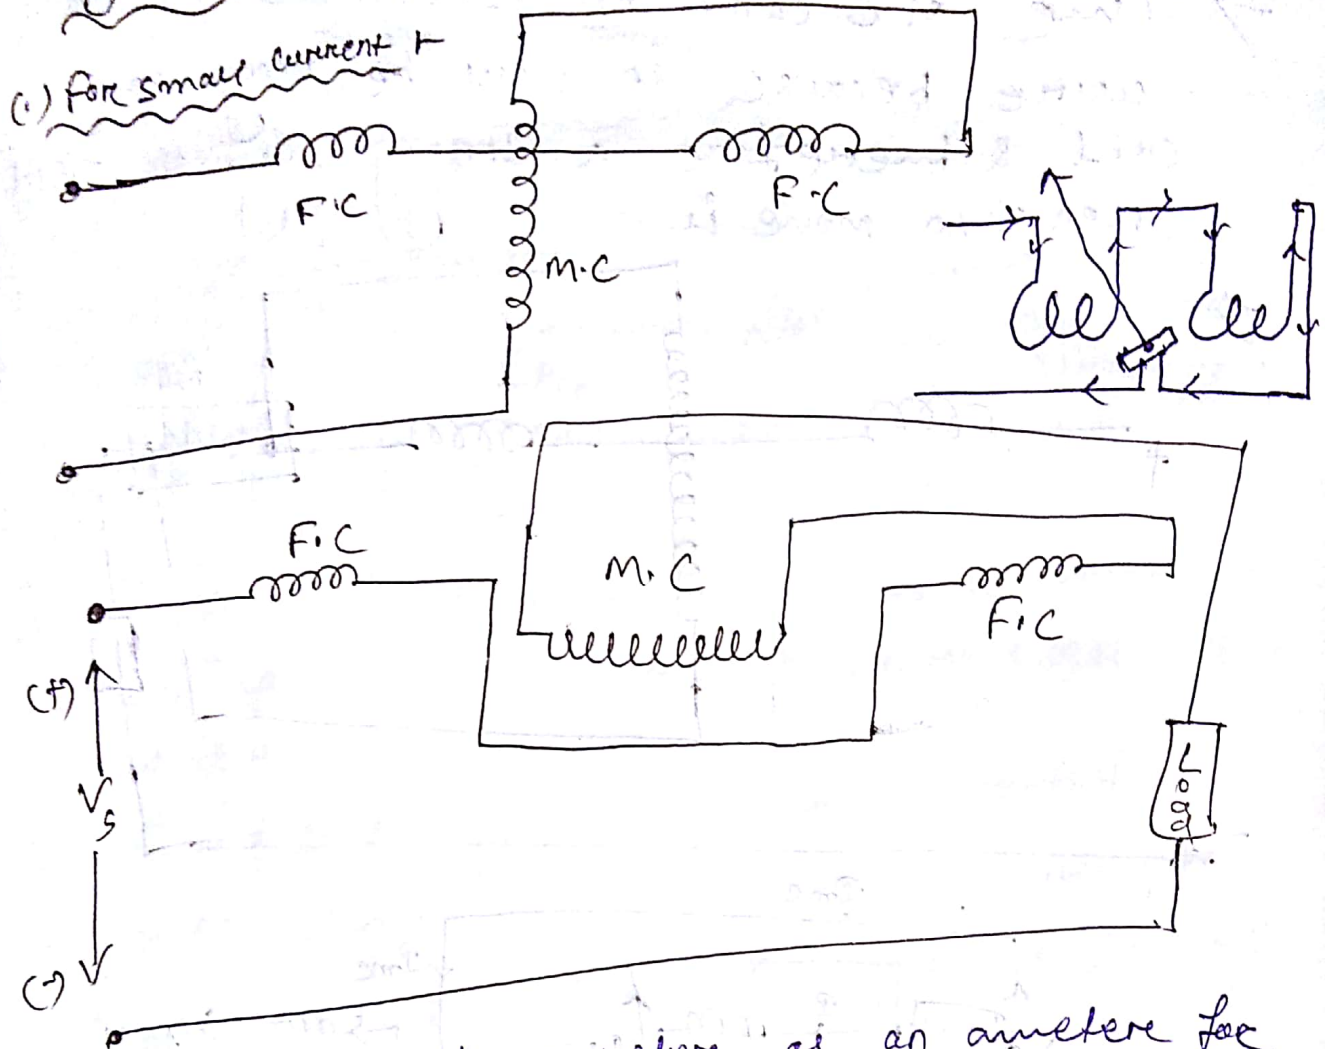 (i) for small current :-
F.C
F.C
M.C
F.C
M.C
F.C
(+)
Vs
Load
(-)
as an ametere for